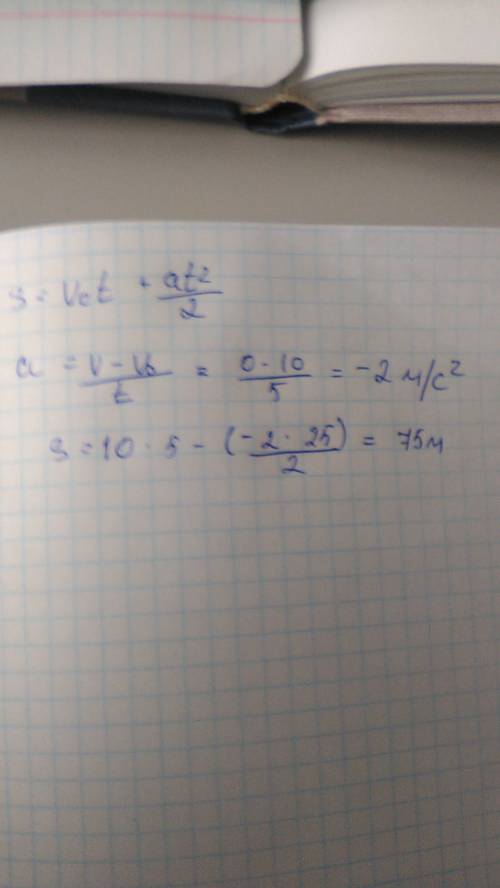 s = V₀t + at²/2
a = V - V₀/t = 0 - 10/5 = -2 м/с²
s = 10 · 5 - (-2 · 25)/2 = 75м